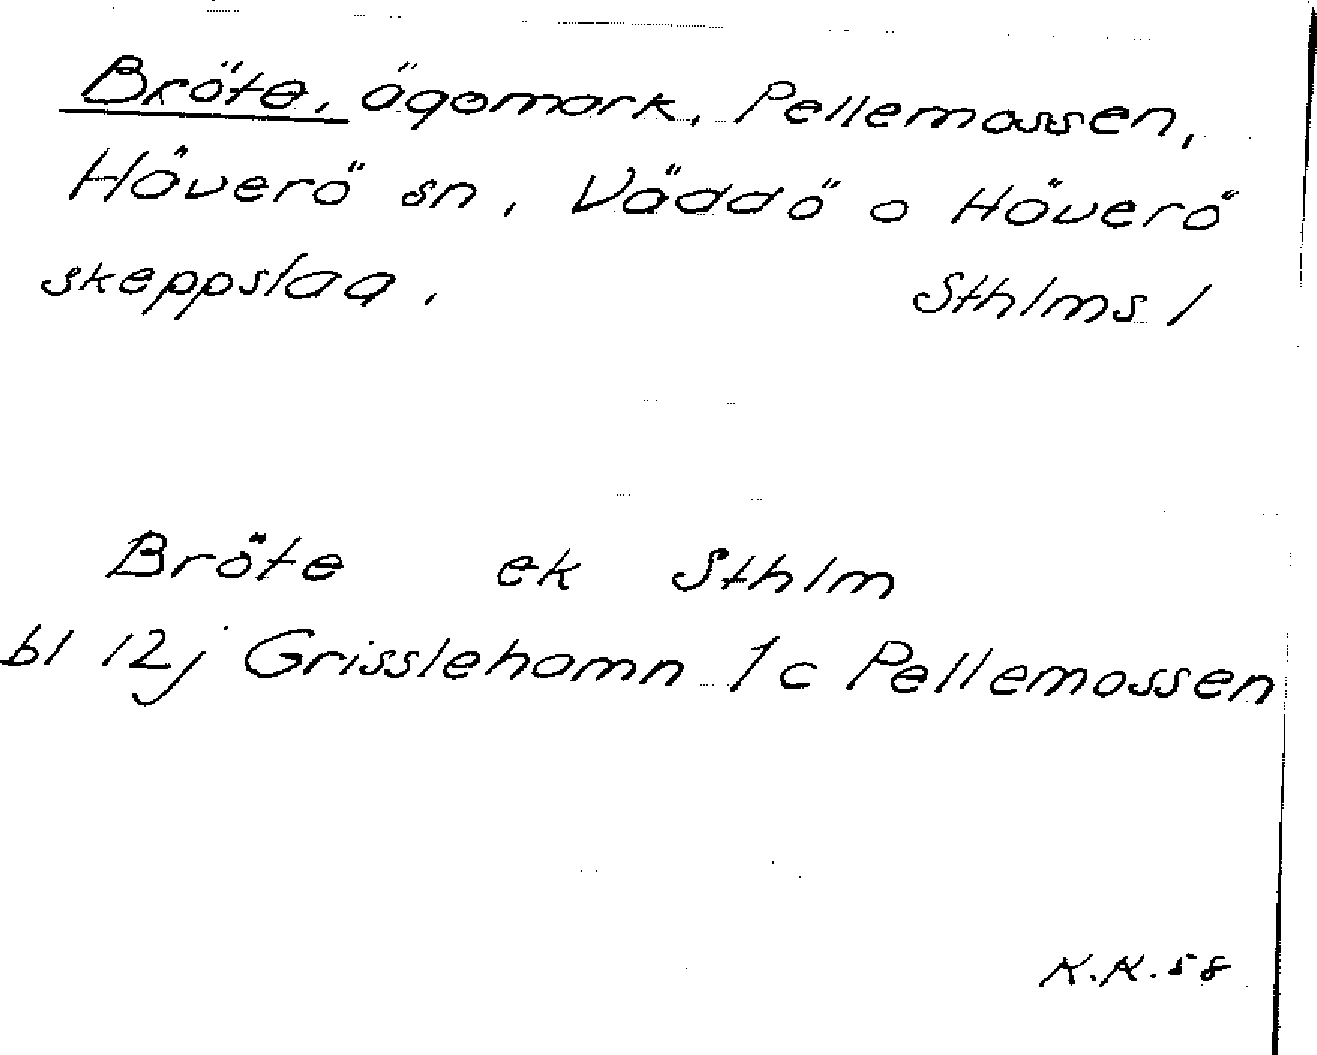 Bröte, ägomark, Pellemossen,
Häverö sn, Väddö o Häverö
skeppslag, Sthlms l
Bröte ek Sthlm
bl 12j Grisslehamn 1c Pellemossen
K.K. 58